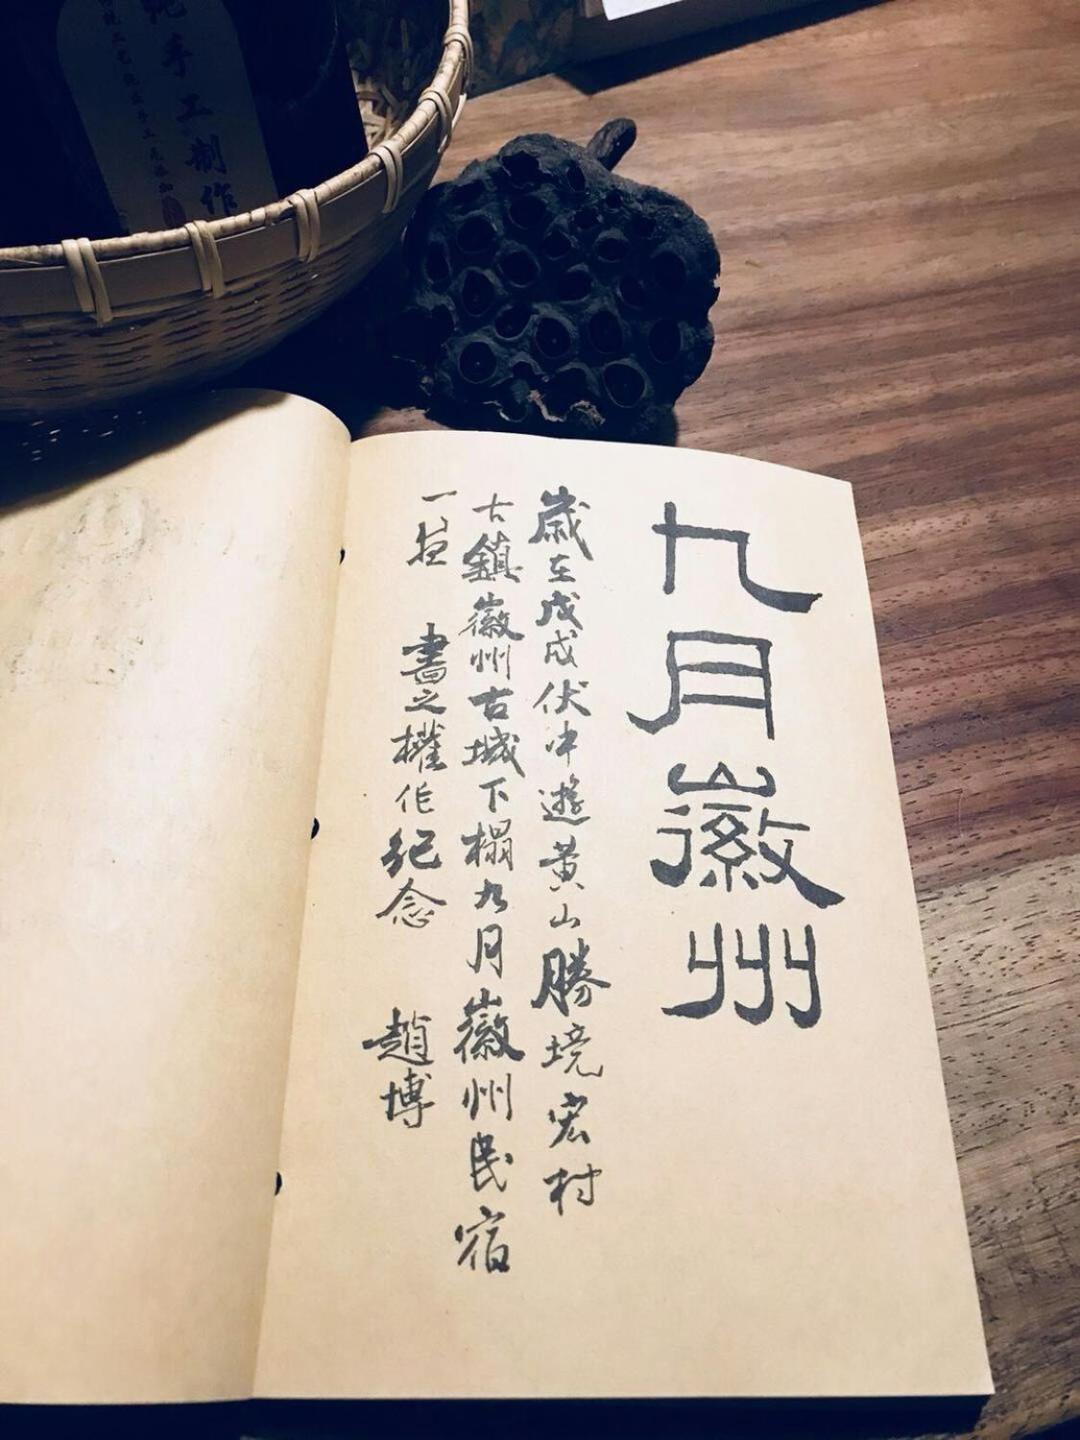 九月徽州
歲在戊戌伏中遊黃山勝境宏村
古鎮徽州古城下榻九月徽州民宿
一夜 書之權作紀念 趙博
手工制作